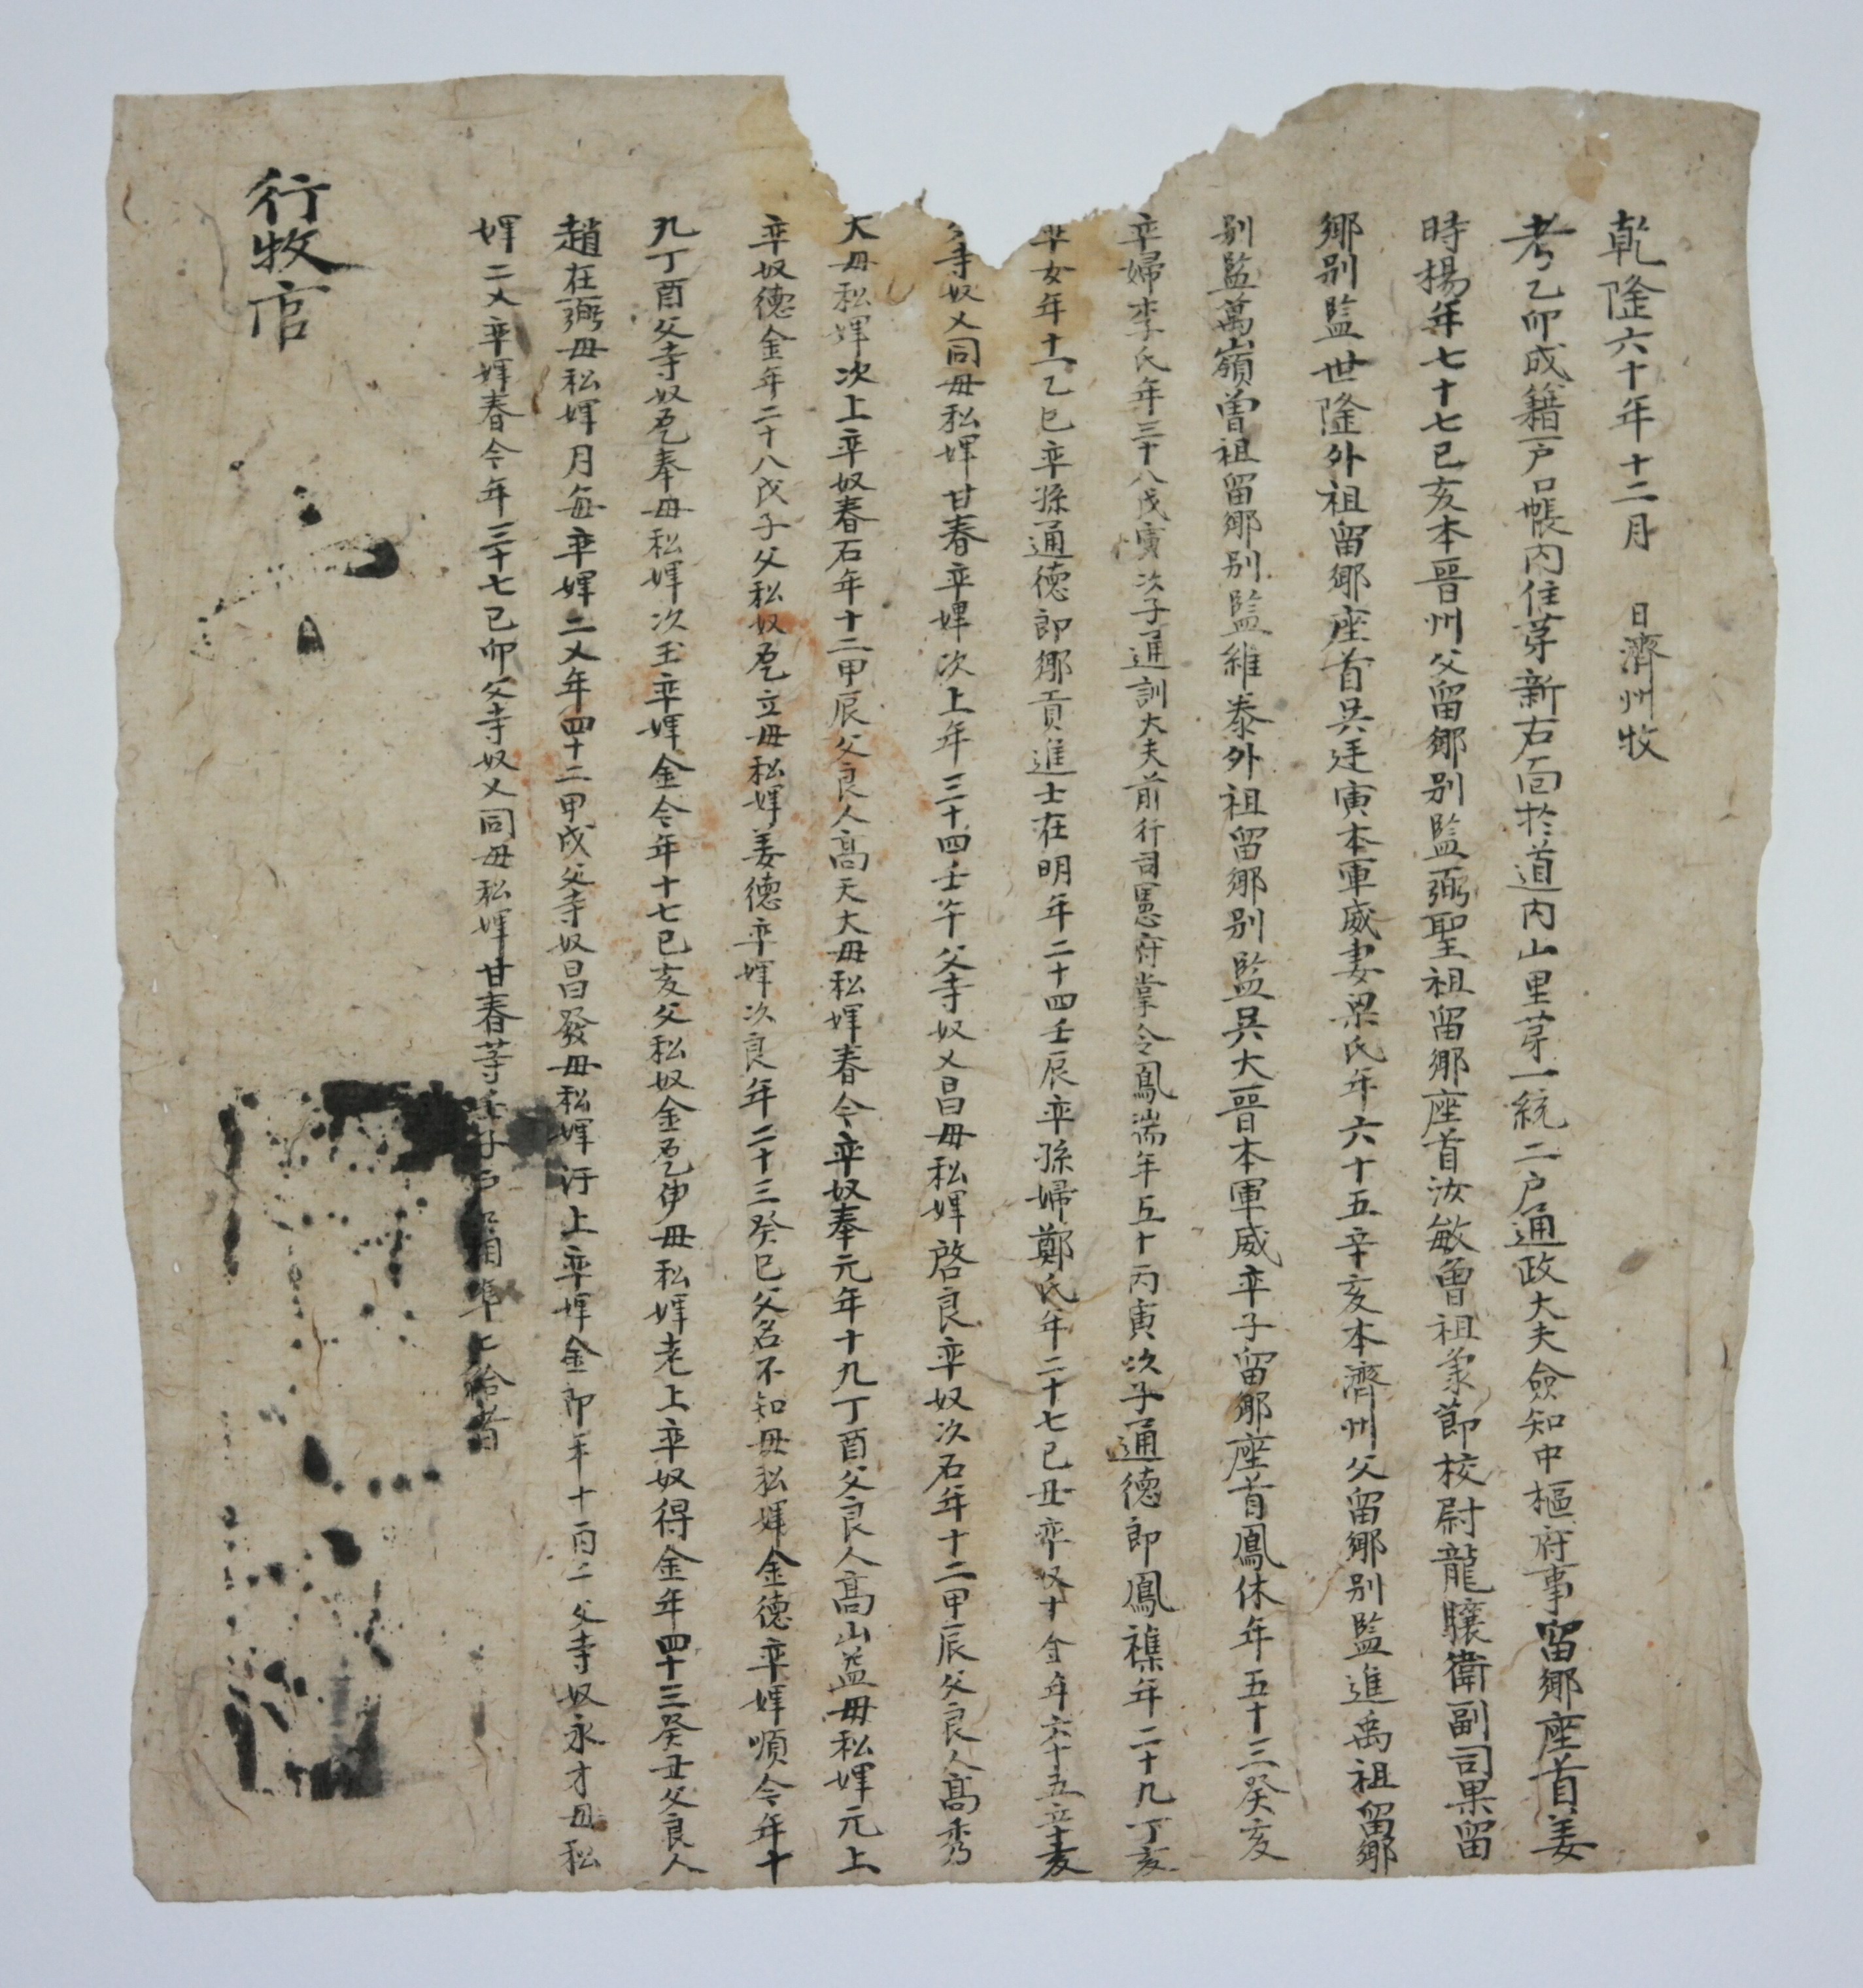 乾隆六十年十二月 日濟州牧
考乙卯成籍戶口帳內住芽新右面於道內山里芽一統二戶通政大夫僉知中樞府事留鄕座首姜
時揚年七十七己亥本晋州父留鄕別監弼聖祖留鄕座首汝敏曾祖彖節校尉龍驤衛副司果留
鄕別監世隆外祖留鄕座首吳廷寅本軍威妻梁氏年六十五辛亥本濟州父留鄕別監進禹祖留鄕
別監萬嶺曾祖留鄕別監維泰外祖留鄕別監吳大晋本軍威率子留鄕座首鳳休年五十三癸亥
率婦李氏年三十八戊寅次子通訓大夫前行司憲府掌令鳳瑞年五十丙寅次子通德郎鳳襍年二十九丁亥
率女年十一乙巳率孫通德郎鄕貢進士在明年二十四壬辰率孫婦鄭氏年二十七己丑率奴十金年六十五辛亥
父寺奴乂同母私婢甘春率婢次上年三十四壬午父寺奴乂昌母私婢啓良率奴次石年十二甲辰父良人高秀
大母私婢次上率奴春石年十二甲辰父良人高天大母私婢春今率奴奉元年十九丁酉父良人高山益母私婢元上
率奴德金年二十八戊子父私奴乭立母私婢姜德率婢次良年二十三癸巳父名不知母私婢金德率婢順今年十
九丁酉父寺奴乭奉母私婢次玉率婢金今年十七己亥父私奴金乭伊母私婢老上率奴得金年四十三癸丑父良人
趙在弼母私婢月每率婢二乂年四十二甲戌父寺奴昌發母私婢汙上率婢金郎年十一酉二父寺奴永才母私
婢二乂率婢春今年三十七己卯父寺奴乂同母私婢甘春等壬子戶口相準上給者
行牧官